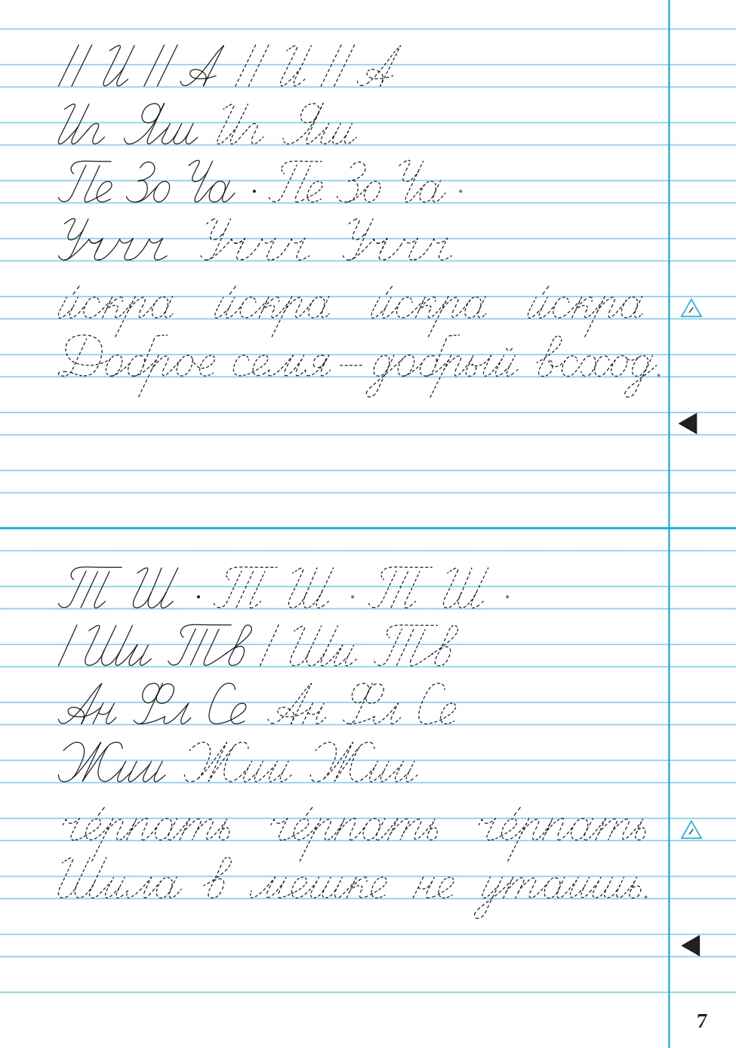 // И // А // И // А
Иг Яш Иг Яш
Пе Зо Ча · Пе Зо Ча ·
Угггг Угггг Угггг
и́скра и́скра и́скра и́скра
Доброе семя — добрый всход.
Т Ш · Т Ш · Т Ш ·
/ Ши Тв / Ши Тв
Ан Фл Се Ан Фл Се
Жиии Жиии Жиии
че́рпать че́рпать че́рпать
Шила в мешке не утаишь.
7